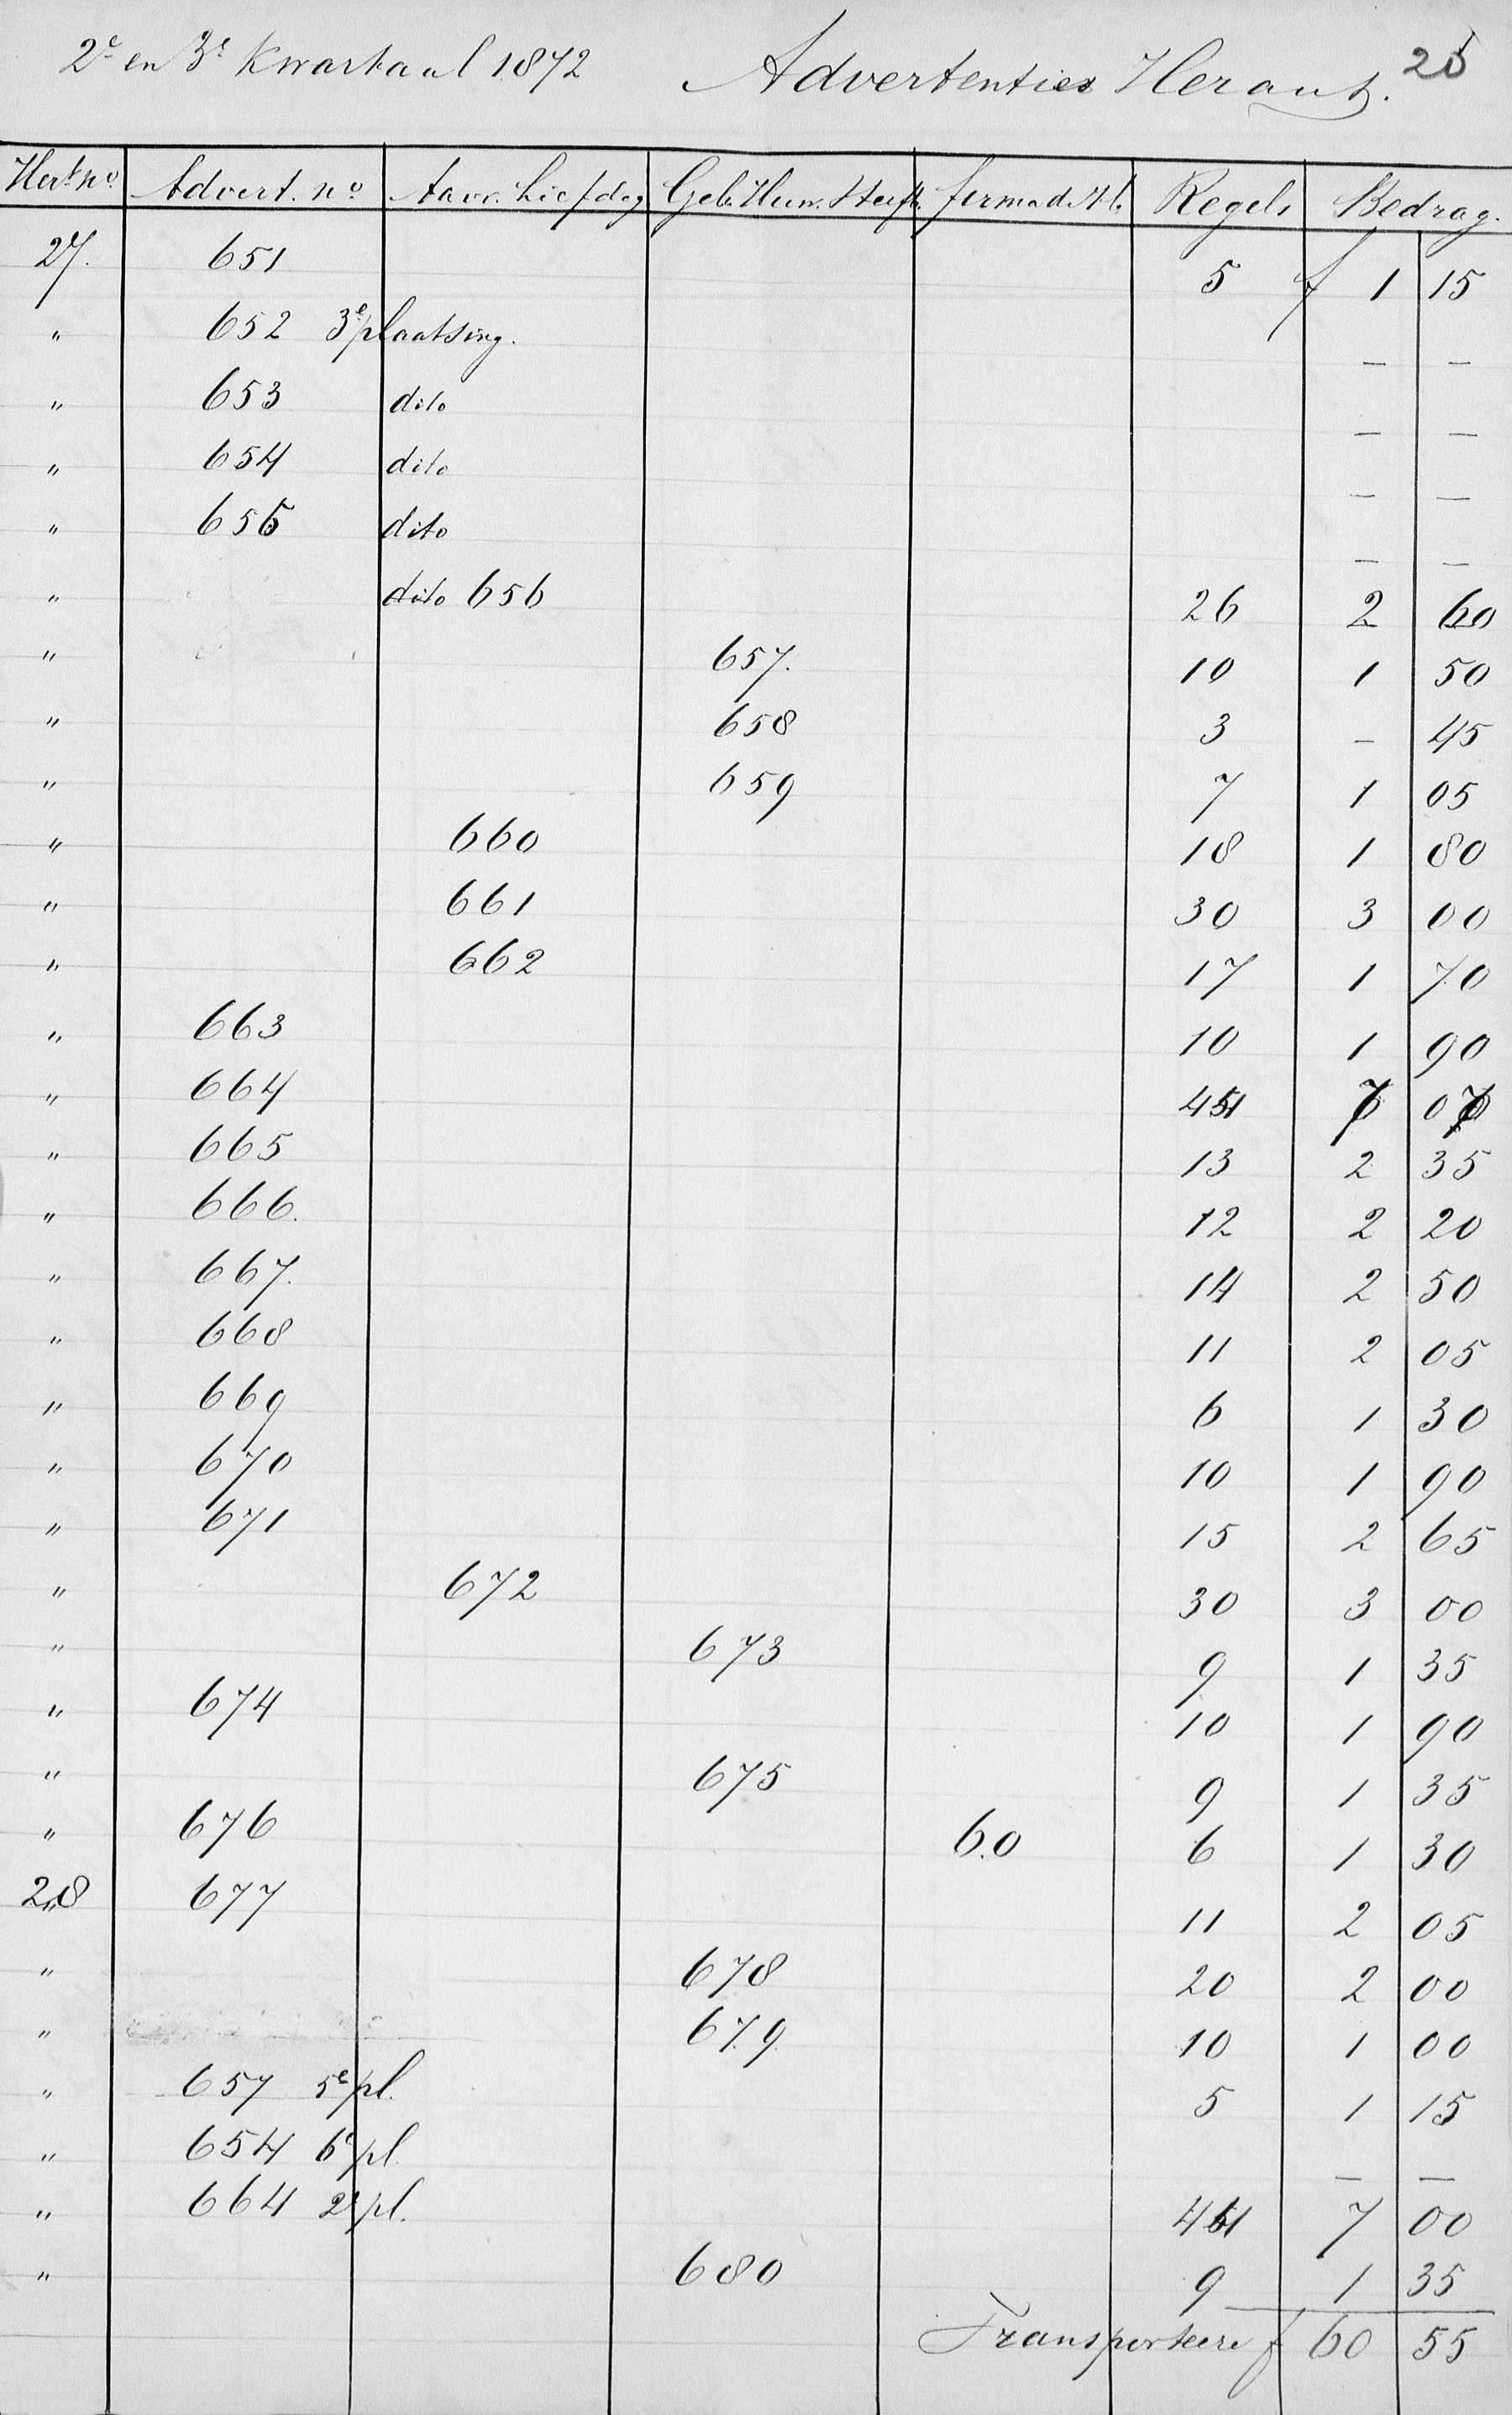 2e en 3e Kwartaal 1872 Advertenties Heraut. 25
Hert. no. Advert. no. Aavr. Liefdeg Geb. Huw. Sterft. Regels Bedrag.
27. 651 5 f 1 15
" 652 3e plaatsing. — —
" 653 dito — —
" 654 dito — —
" 655 dito — —
" dito 656 26 2 60
" 657. 10 1 50
" 658 3 – 45
" 659 7 1 05
" 660 18 1 80
" 661 30 3 00
" 662 17 1 70
" 663 10 1 90
" 664
" 665 13 2 35
" 666. 12 2 20
" 667. 14 2 50
" 668 11 2 05
" 669 6 1 30
" 670 10 1 90
" 671 15 2 65
" 672 30 3 00
" 673 9 1 35
" 674 10 1 90
" 675 9 1 35
" 676 60 6 1 30
28 677 11 2 05
" 678 20 2 00
" 679 10 1 00
" 657 5e pl. 5 1 15
" 654 6e pl. — —
" 664 2e pl. 7 00
" 680 9 1 35
Transporteere f 60 55